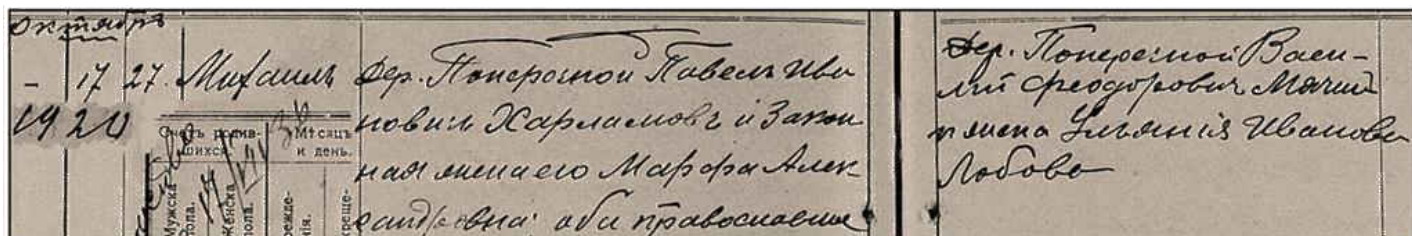 октябрь
- 17 27. Михаилъ
1920
Счетъ родив-
шихся.
Мѣсяцъ
и день.
Мужска
пола.
Женска
пола.
Дер. Поперечной Павелъ Ива
новичъ Харламовъ и закон
ная жена его Марфа Алек
сандровна: оба православные
Дер. Поперечной Васи-
лий Феодоровичъ Мячин
и жена Ульяния Иванова
Лобова